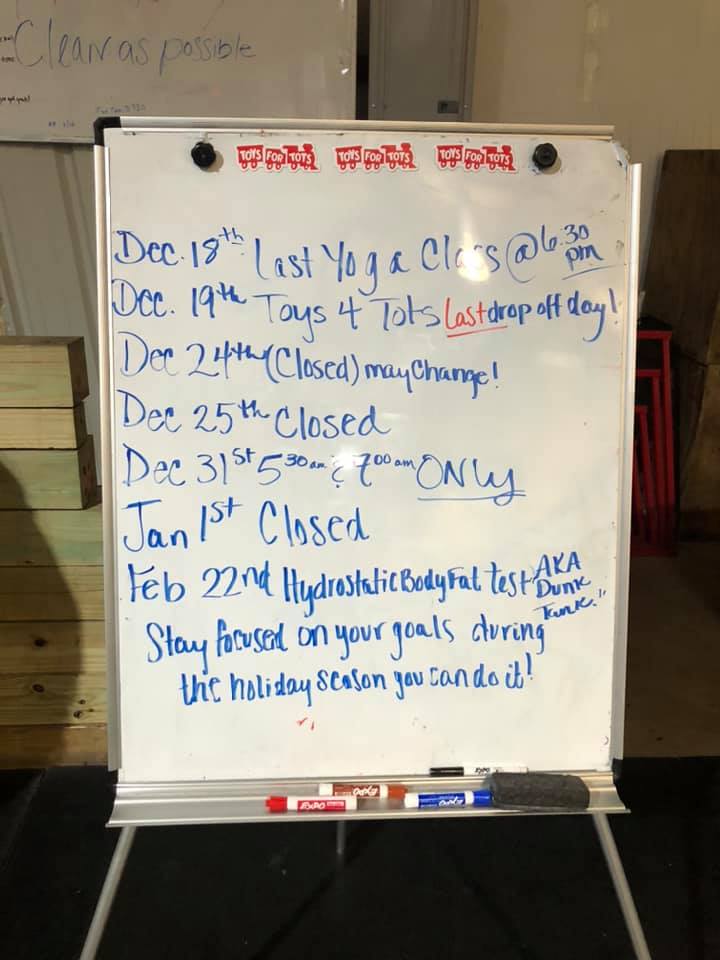 Clean as possible
TOYS FOR TOTS TOYS FOR TOTS TOYS FOR TOTS
Dec. 18th Last Yoga Class @ 6:30 pm
Dec. 19th Toys 4 Tots Last drop off day!
Dec 24th (Closed) may Change!
Dec 25th Closed
Dec 31st 5 30 am & 7 00 am ONLY
Jan 1st Closed
Feb 22nd Hydrostatic Body Fat test AKA Dunk Tank!"
Stay focused on your goals during
the holiday season you can do it!
EXPO
EXPO
EXPO EXPO